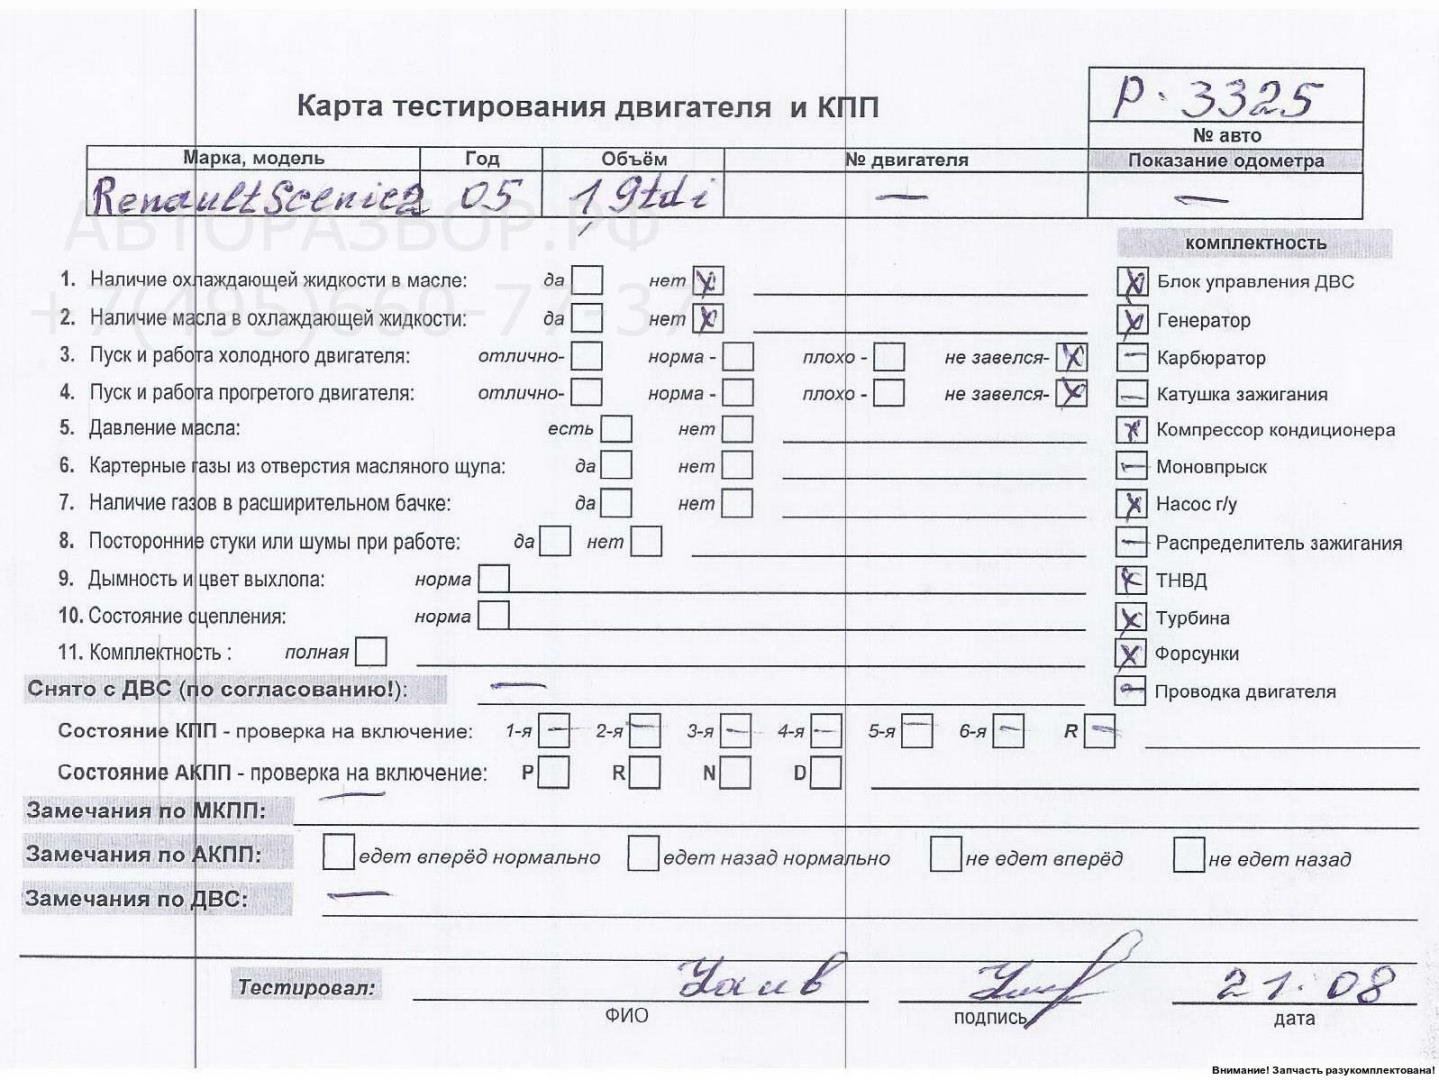 Р. 3325
Карта тестирования двигателя и КПП
№ авто
Марка, модель Год Объём № двигателя Показание одометра
Renault Scenic 2 05 1,9tdi — —
АВТОРАЗБОР.РФ
комплектность
1. Наличие охлаждающей жидкости в масле: да нет X Блок управления ДВС
+7(495)660-77-37
2. Наличие масла в охлаждающей жидкости: да нет X Генератор
3. Пуск и работа холодного двигателя: отлично- норма - плохо - не завелся- X Карбюратор
4. Пуск и работа прогретого двигателя: отлично- норма - плохо - не завелся- X Катушка зажигания
5. Давление масла: есть нет Компрессор кондиционера
6. Картерные газы из отверстия масляного щупа: да нет Моновпрыск
7. Наличие газов в расширительном бачке: да нет Насос г/у
8. Посторонние стуки или шумы при работе: да нет Распределитель зажигания
9. Дымность и цвет выхлопа: норма ТНВД
10. Состояние сцепления: норма Турбина
11. Комплектность : полная Форсунки
Снято с ДВС (по согласованию!): — Проводка двигателя
Состояние КПП - проверка на включение: 1-я — 2-я — 3-я — 4-я — 5-я — 6-я — R —
Состояние АКПП - проверка на включение: P R N D
Замечания по МКПП: —
Замечания по АКПП: едет вперёд нормально едет назад нормально не едет вперёд не едет назад
Замечания по ДВС: —
Тестировал: 21.08
ФИО подпись дата
Внимание! Запчасть разукомплектована!